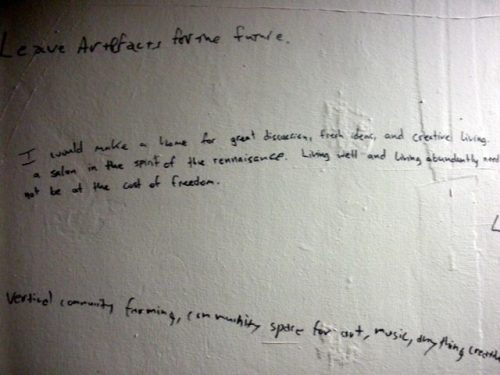 Leave Artefacts for the future.
I would make a home for great discussion, fresh ideas, and creative living.
a salon in the spirit of the rennaisance. Living well and living abundantly need
not be at the cost of freedom.
L
Vertical community farming, community space for art, music, anything creative